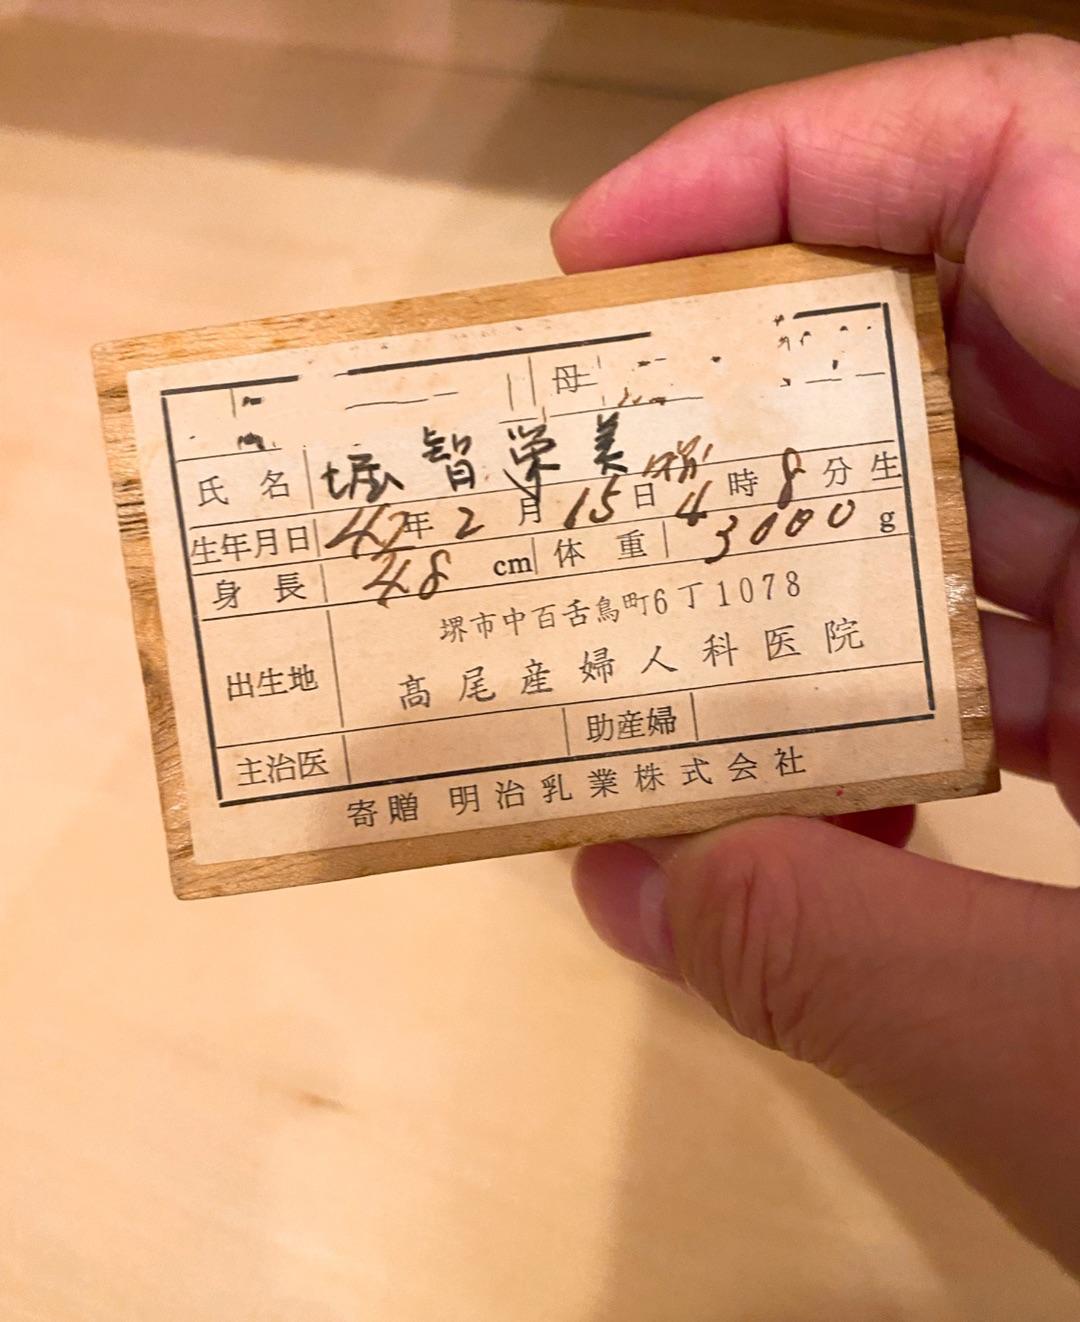 母
氏名 堀智栄美
生年月日 42年2月15日 4時8分生
身長 48cm 体重 3000g
出生地 堺市中百舌鳥町6丁1078
髙尾産婦人科医院
主治医 助産婦
寄贈 明治乳業株式会社